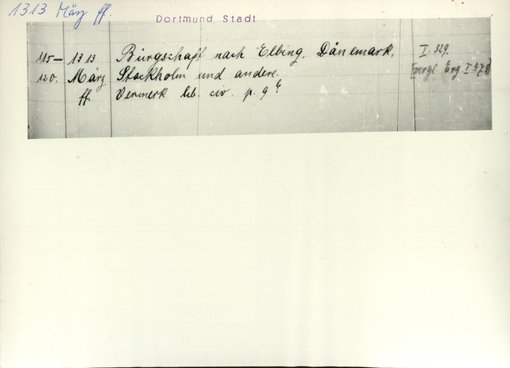 1313 März ff.
Dortmund Stadt
115- 1313 Bürgschaft nach Elbing, Dänemark, I. 329.
120. März Stockholm und andere. vergl. Erg I. 478
ff Vermerk lib. civ. p. 9